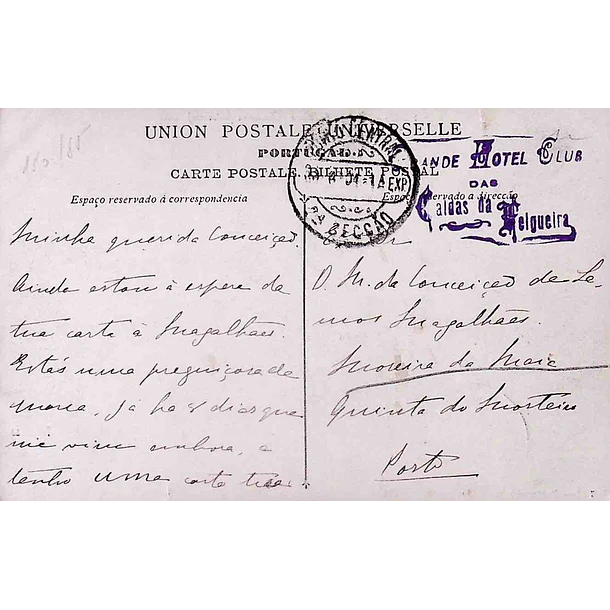 UNION POSTALE UNIVERSELLE
PORTUGAL
CARTE POSTALE. BILHETE POSTAL
Espaço reservado á correspondencia
Espaço reservado a direcção
CENTRAL
EXP
SECÇÃO
ANDE HOTEL CLUB
DAS
Caldas da Felgueira
Minha querida Conceição.
Ainda estou á espera da
tua carta á Magalhães.
Estás uma preguiçosa de
marca, já ha 8 dias que
me vim embora, e
tenho uma carta tua
D. M. da Conceição de Le-
mos Magalhães.
Moreira da Maia
Quinta do Mosteiro
Porto